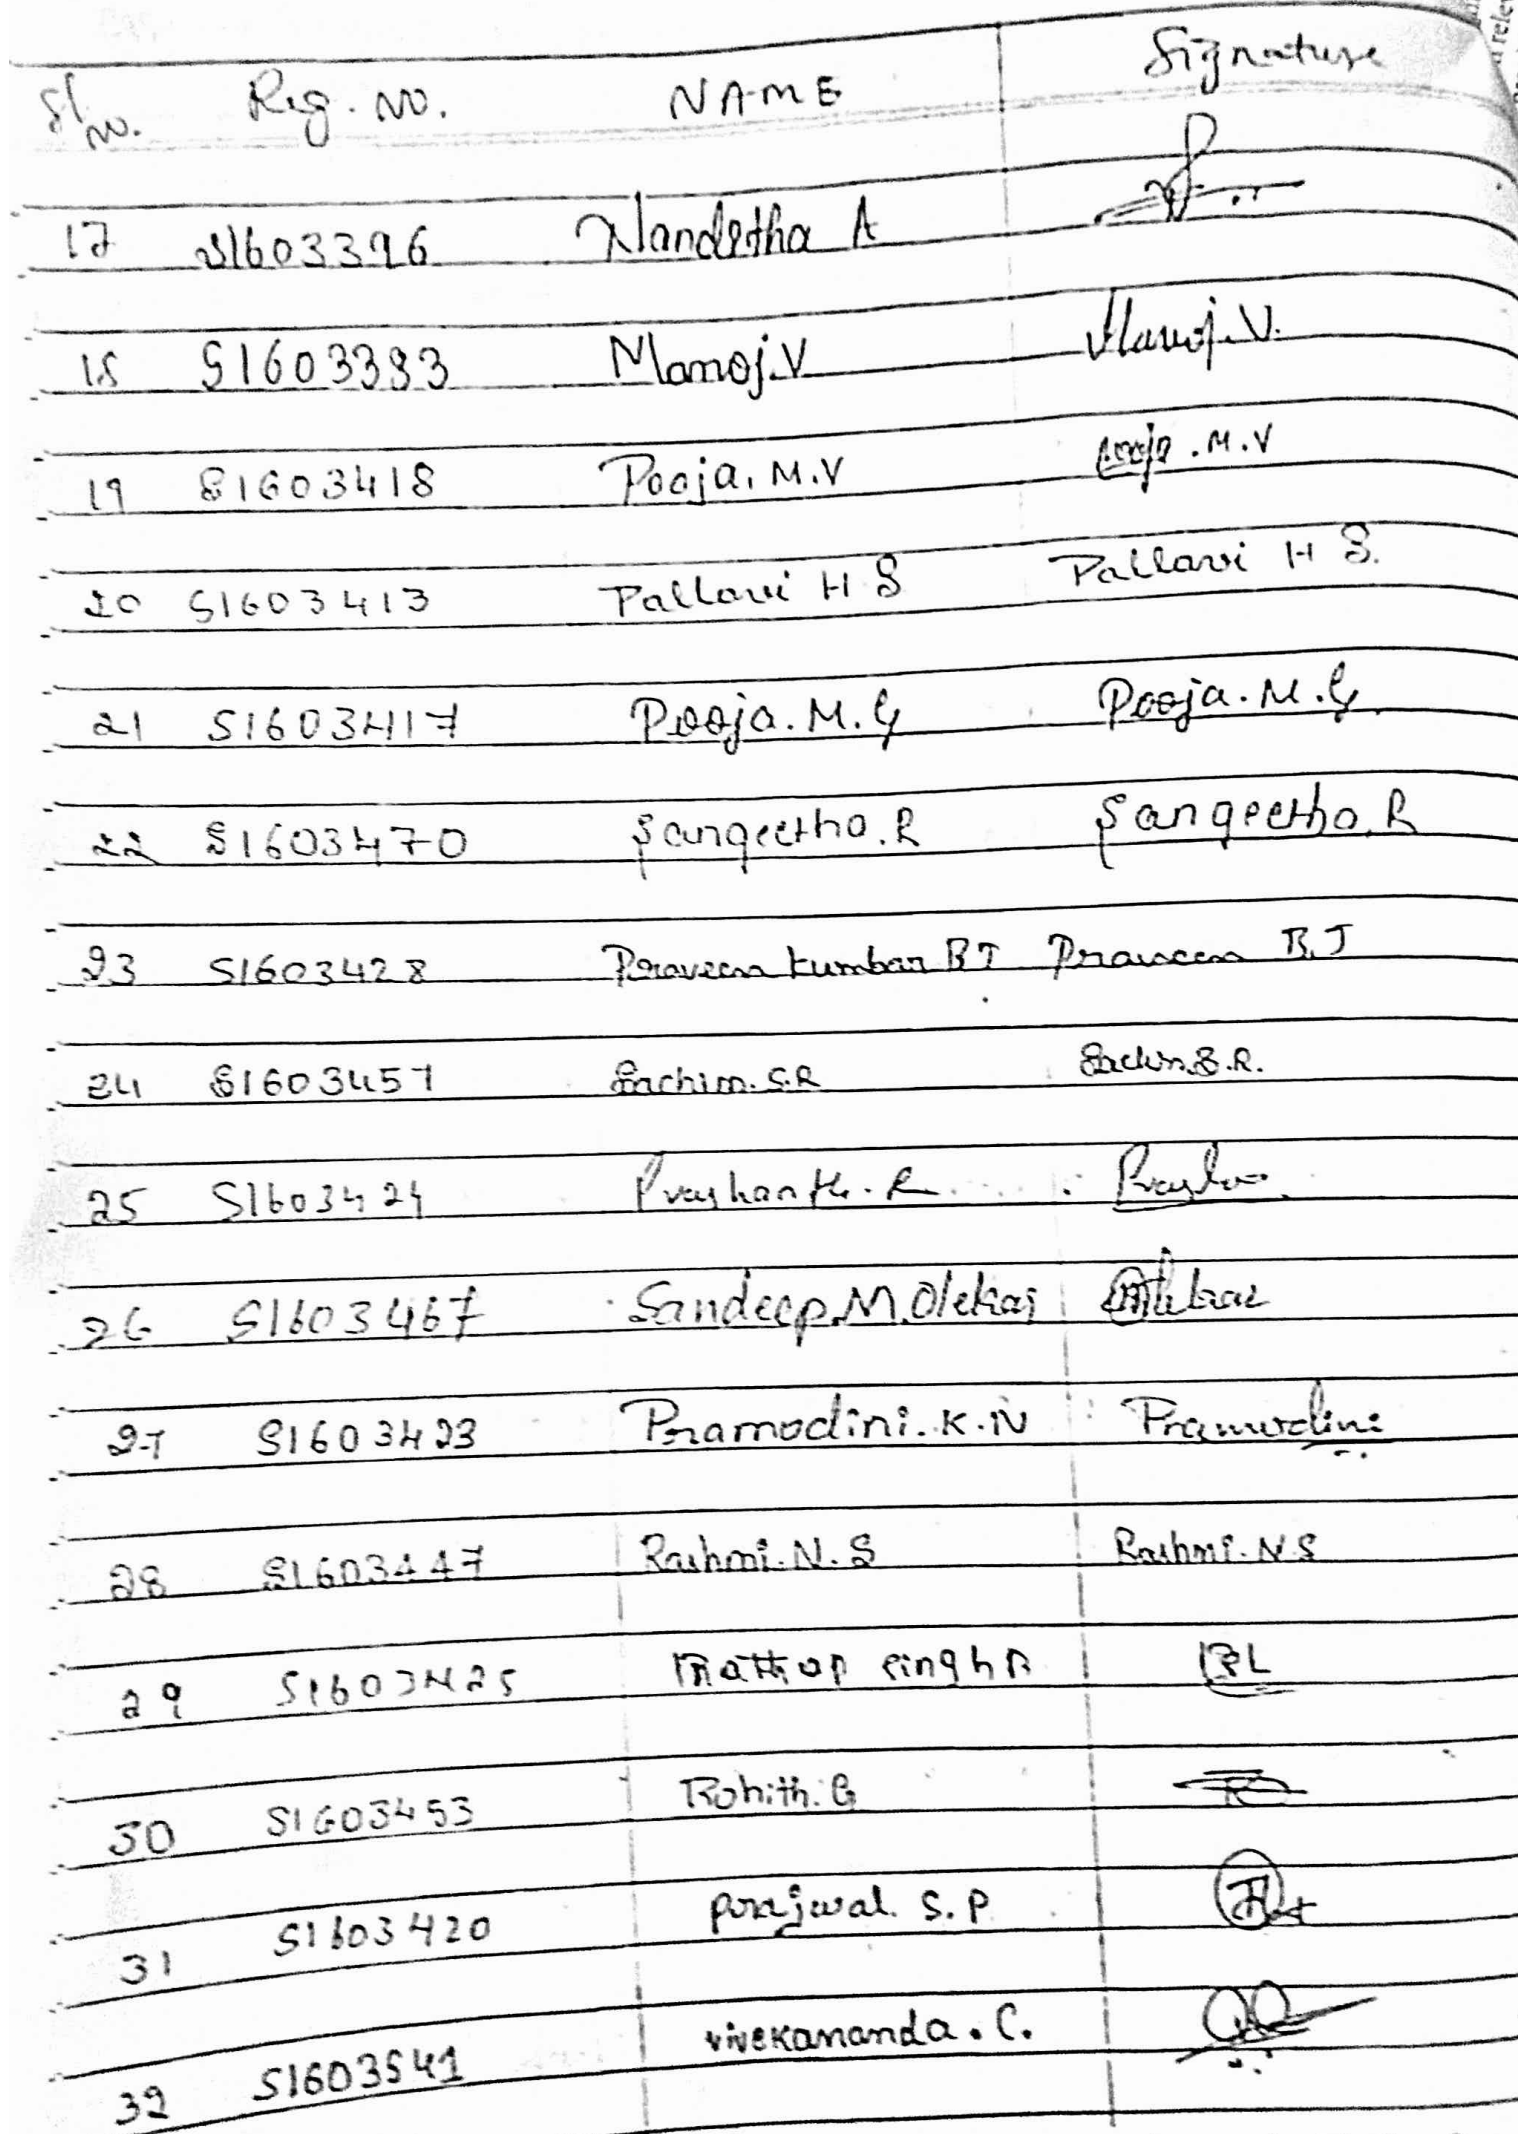 Sl. No. Reg. No. NAME Signature
17 S1603396 Nandetha A
18 S1603393 Manoj.V Manoj.V.
19 S1603418 Pooja. M.V Pooja .M.V
20 S1603413 Pallavi H S Pallavi H S.
21 S1603417 Pooja. M. G Pooja. M. G.
22 S1603470 Sangeetha. R Sangeetha. R
23 S1603428 Praveen kumbar B T Praveen B.T
24 S1603457 Sachin. S.R Sachin.S.R.
25 S1603424 Prashanth. R
26 S1603467 Sandeep.M.Olekar Olekar
27 S1603423 Pramodini. K. N Pramodini
28 S1603447 Rashmi. N. S Rashmi. N S
29 S1603425 singh R
30 S1603453 Rohith. G
31 S1603420 prajwal. S. P
32 S1603541 vivekananda. C.